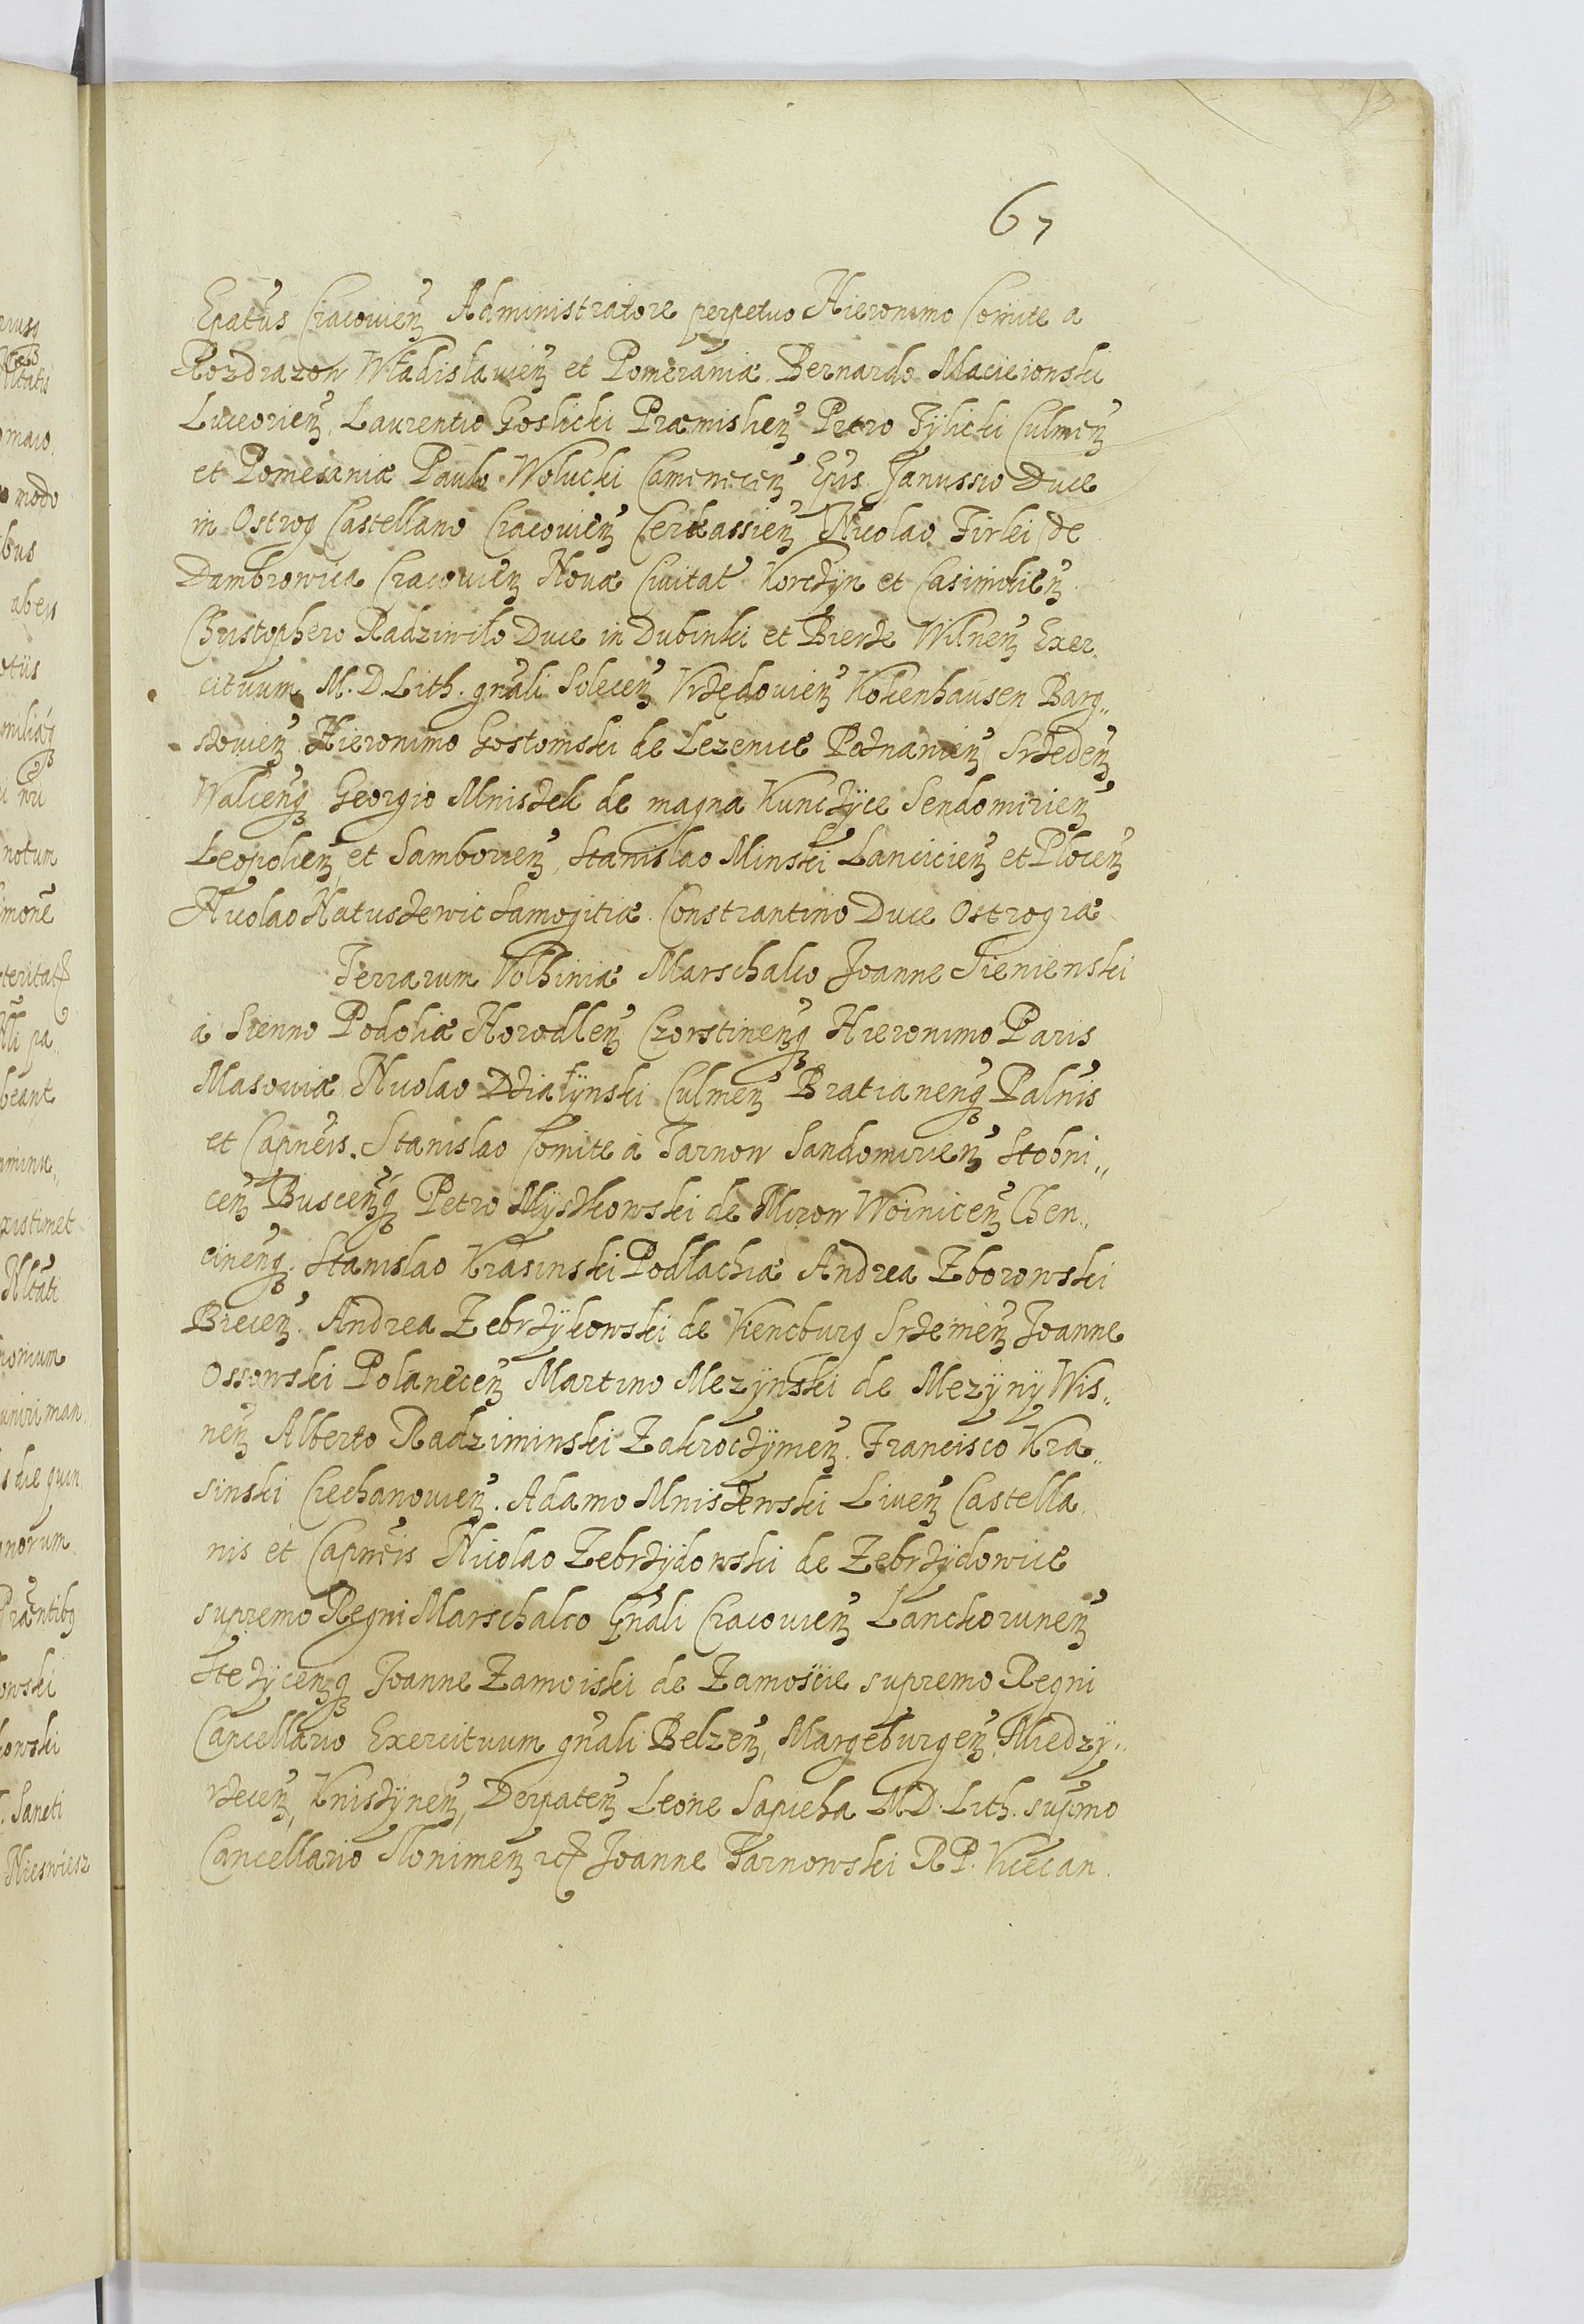 67
Epatus Cracovien Administratore perpetuo Hieronimo Comite a
Rozdrazow Władislavien et Pomeraniæ Bernardo Macieiowski
Luceorien, Laurentio Goslicki Præmislien Petro Tÿlicki Culmen
et Pomesaniæ Paulo Wolucki Camenecen Epis Janussio Duce
in Ostrog Castellano Cracovien Cerkassien Nicolao Firlei de
Dambrowica Cracovien Novæ Civitat Korczÿn et Casimirien
Christophero Radziwiło Duce in Dubinki et Bierze Wilnen Exer.
cituum M. D. Lith. gnali Solecen Krzedovien Kokenhausen Barg„
zovien Hieronimo Gostomski de Lezenice Poznanien Srzeden
Walceng Georgio Mniszek de magna Kunczÿce Sendomirien
Leopolien, et Samborien, Stanislao Minski Lancicien et Plocen
Nicolao Natuszewic Samogitiæ. Constrantino Duce Ostrogiæ
Terrarum Volhiniæ Marschalco Joanne Sienienski
à Sienno Podoliæ Horodllen Czorstineng Hieronimo Paris
Masoviæ Nicolao Dzialÿnski Culmen Bratianeng Palnis
et Capneis. Stanislao Comite à Tarnow Sandomirien Stobni„
cen Busceng Petro Mÿszkowski de Mirow Woinicen Chen„
cineng. Stanislao Krasinski Podlachiæ Andrea Zborowski
Biecen. Andrea Zebrzÿkowski de Kiencburg Srzemen Joanne
Ossowski Polanecen Martino Mezÿnski de Mezÿnÿ Wis„
nen Alberto Radziminski Zakroczÿmen. Francisco Kra„
sinski Ciechanovien. Adamo Mniszewski Liven Castella.
nis et Capneis Nicolao Zebrzÿdowski de Zebrzÿdowice
supremo Regni Marschalco Gnali Cracovien Lanckorunen
Stezÿceng Joanne Zamoiski de Zamoscie supremo Regni
Cancellario Exercituum gnali Belzen, Margeburgen, Miedzy„
rzecen, Kniszÿnen, Derpaten Leone Sapieha M.D. Lith. supmo
Cancellario Slonimen Joanne Tarnowski R P. Vicecan.